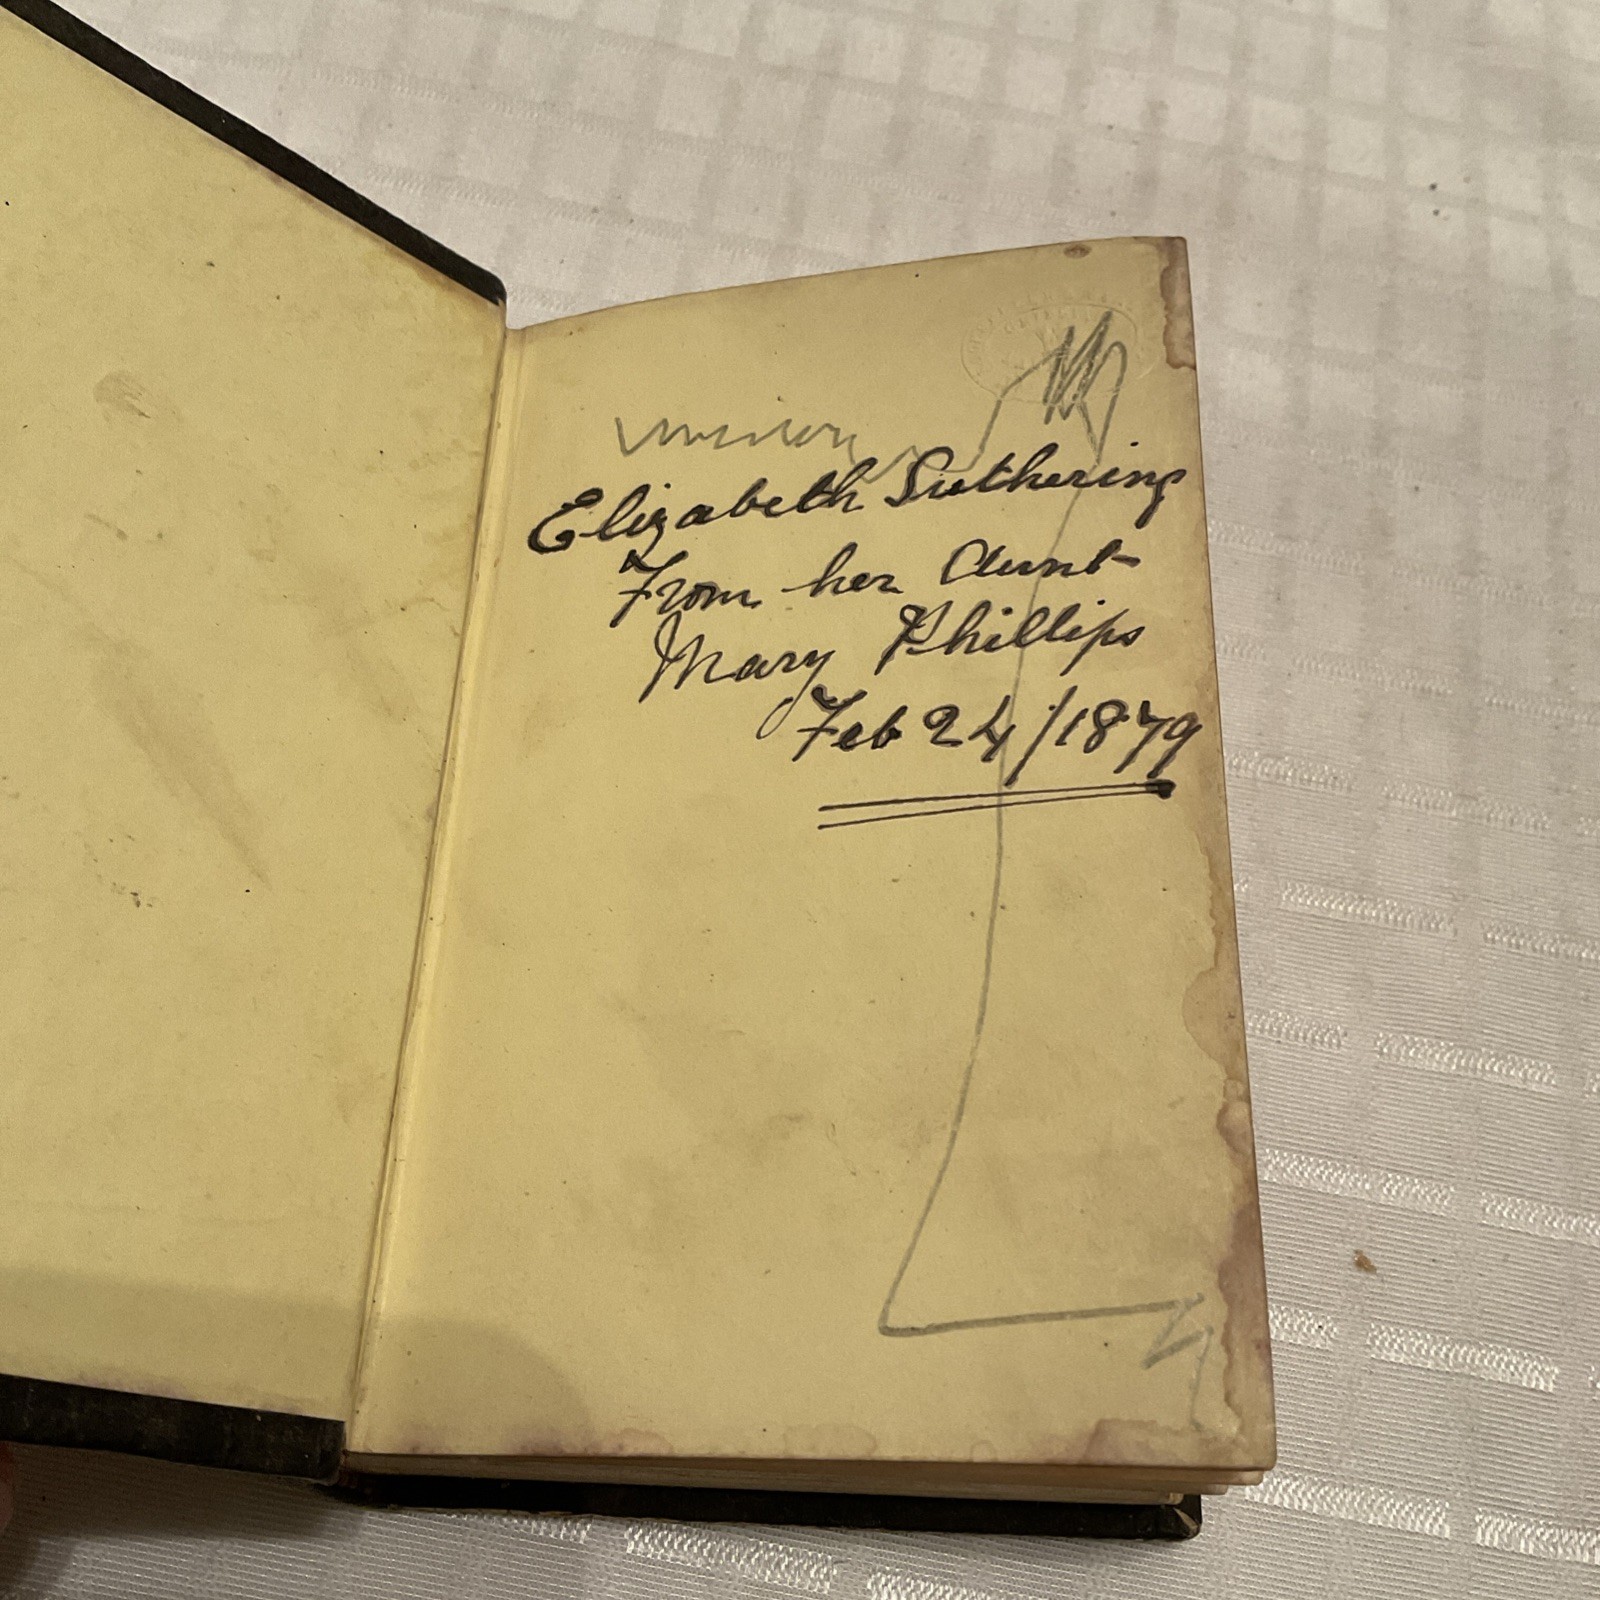 Elizabeth Suthering
From her Aunt
Mary Phillips
Feb 24/1879